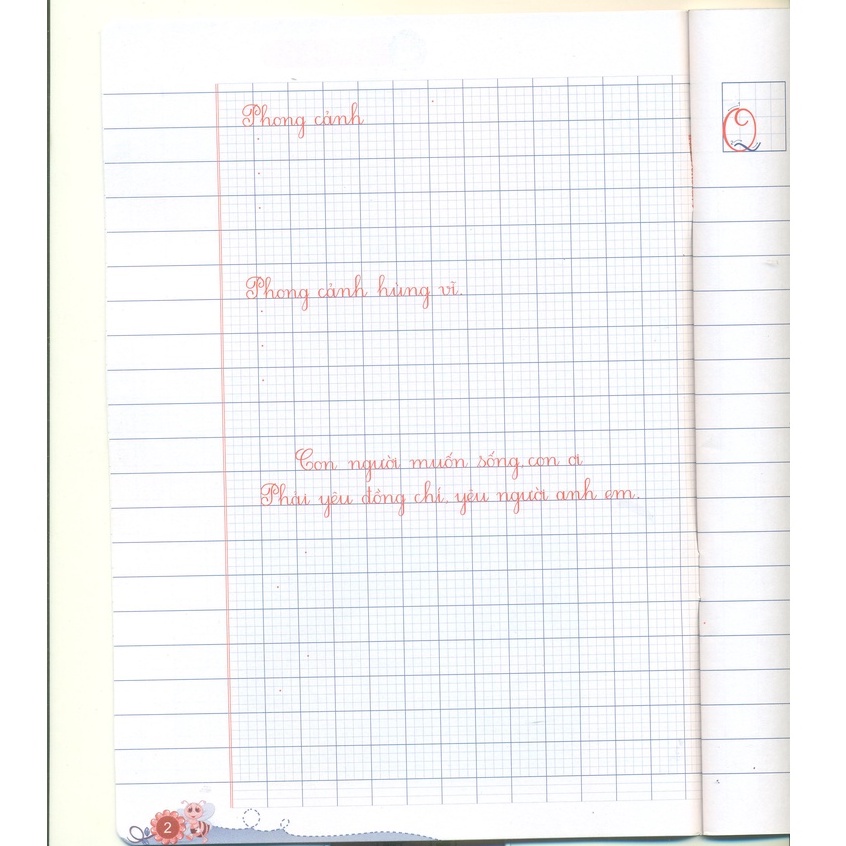 Phong cảnh
Q
Phong cảnh hùng vĩ.
Con người muốn sống, con ơi
Phải yêu đồng chí, yêu người anh em.
2